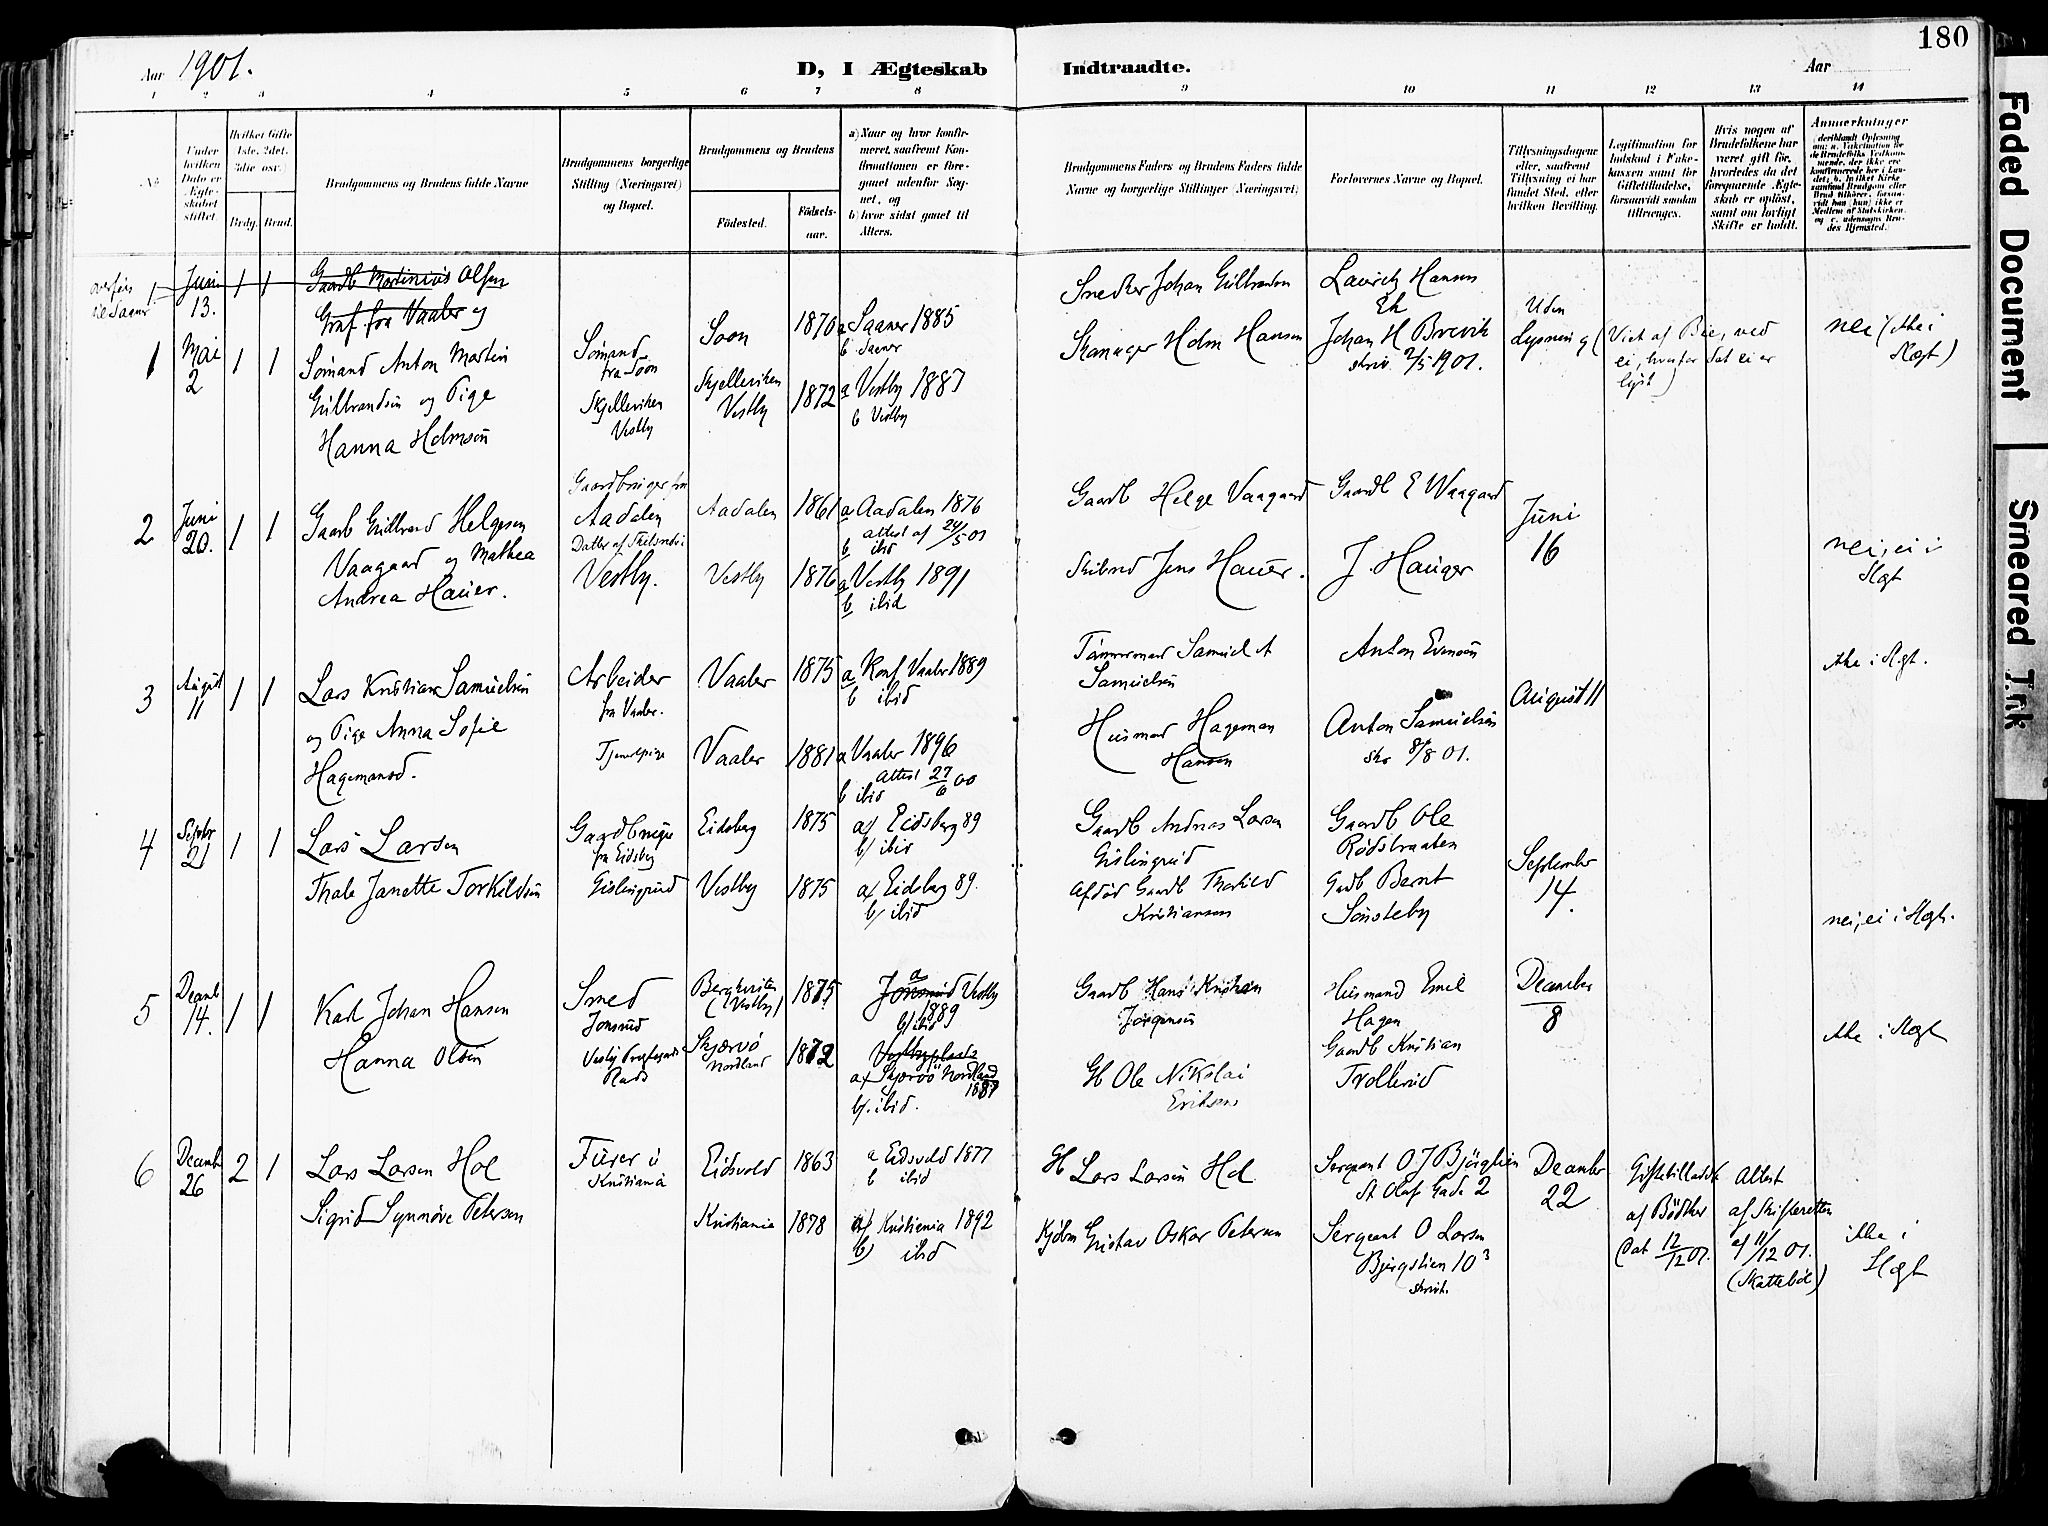 180
Aar 1901.
D, I Ægteskab Indtraadte.
Aar
1 2 3 4 5 6 7 8 9 10 11 12 13 14
No
Under hvilken Dato er Ægteskabet stiftet.
Hvilket Gifte 1ste, 2det, 3die osv.)
Brdg. Brud.
Brudgommens og Brudens fulde Navne
Brudgommens borgerlige Stilling (Næringsvei) og Bopæl.
Brudgommens og Brudens
Fødested.
Fødselsaar.
a) Naar og hvor konfirmeret, saafremt Konfirmationen er foregaaet udenfor Sognet, og
b) hvor sidst gaaet til Alters.
Brudgommens Faders og Brudens Faders fulde Navne og borgerlige Stillinger (Næringsvei)
Forlovernes Navne og Bopæl.
Tillysningsdagene eller, saafremt Tillysning ei har fundet Sted, efter hvilken Bevilling.
Legitimation for Indskud i Enkekassen samt for Giftetilladelse, forsaavidt saadan tiltrænges.
Hvis nogen af Brudefolkene har været gift før, hvorledes da det foregaaende Ægteskab er opløst, samt om lovligt Skifte er holdt.
Anmerkninger
1. Juni 13. 1 1 Gaardb Martinius Olsen
Graf fra Vaaler og
1 Mai 2 1 1 Sømand Anton Martin
Gulbrandsen og Pige
Hanna Holmsen
Sømand fra Soon
Skjelleviken Vestby
Soon 1870 a Saaner 1885
b Saaner
Skjelleviken Vestby 1872 a Vestby 1887
b Vestby
Snedker Johan Gulbrandsen
Holm Hansen
Laurits Hansen
Ek
Johan H Brevik
skriv. 2/5 1901.
Uden Lysning
nei (ikke i Slægt)
2 Juni 20. 1 1 Gaardb Gulbrand Helgesen
Vaagaard og Mathea
Andrea Hauer.
Gaardbruger fra
Aadalen
Vestby.
Aadalen 1861 a Aadalen 1876
attest af 24/5 01
b ibid
Vestby 1876 a Vestby 1891
b ibid
Gaardb Helge Vaagaard
Jens Hauer.
Gaardb E Waagaard
J. Hauger
Juni 16
nei, ei i Slægt
3 August 11 1 1 Lars Kristian Samuelsen
og Pige Anna Sofie
Hagemansd.
Arbeider
fra Vaaler.
Tjenestpige
Vaaler 1875 a Konf Vaaler 1889
b ibid
Vaaler 1881 a Vaaler 1896
attest 27/6 00
b ibid
Tømmermand Samuel A
Samuelsen
Husmand Hageman
Hansen
Anton Evensen
Anton Samuelsen
skr 8/8 01.
August 11
ikke i Slægt.
4 Septbr 21 1 1 Lars Larsen
Thale Janette Torkildsen
Gaardbruger
fra Eidsberg
Gislingrud
Eidsberg 1875 a/ Eidsberg 89
b/ ibid
Vestby 1875 a/ Eidsberg 89.
b/ ibid
Gaardb Andreas Larsen
Gislingrud
Afdød Gaardb Thorkild
Kristiansen
Gaardb Ole
Rødsbraaten
Gaardb Bernt
Sønsteby
September 14.
nei, ei i Slægt.
5 Decemb 14. 1 1 Karl Johan Hansen
Hanna Olsen
Smed
Jonsrud
Vestby Prestegaards
Plads
(Vestby) 1875 Jonsrud a Vestby
1889
b/ ibid
Skjærvø
Nordland 1872 Vestbyplads
a/ Skjærvø Nordland
1887
b/. ibid.
Gaardb Hans Kristian
Jørgensen
Gb Ole Nikolai
Eriksen
Husmand Emil
Hagen
Gaardb Kristian
Trollerud
December 8
ikke i Slægt
6 Decemb 26 2 1 Lars Larsen Hol
Sigrid Synnøve Petersen
Furer i
Kristiania
Eidsvold 1863 a Eidsvold 1877
b ibid
Kristiania 1878 a/ Kristiania 1892
b/ ibid
Gb Lars Larsen Hol
Kjøbm Gustav Oskar Petersen
Sergeant O J Bjørglien
St Olafs Gade 2
Sergeant O Larsen
Bjergstien 10³
skrivt.
December 22
Giftetilladelse
af Bødtker
Dat 12/12 01.
Attest
af Skifteretten
af 11/12 01.
(Skattebøl)
ikke i
Slægt
Faded Document
Smeared Ink